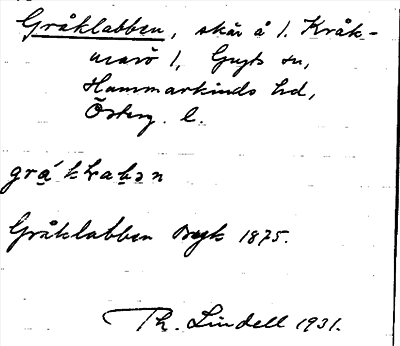 Gråklabben, skär å l. Kråk-
marö l, Gryts sn,
Hammarkinds hd,
Österg. l.
Gråklabben Begk 1875.
Th. Lindell 1931.